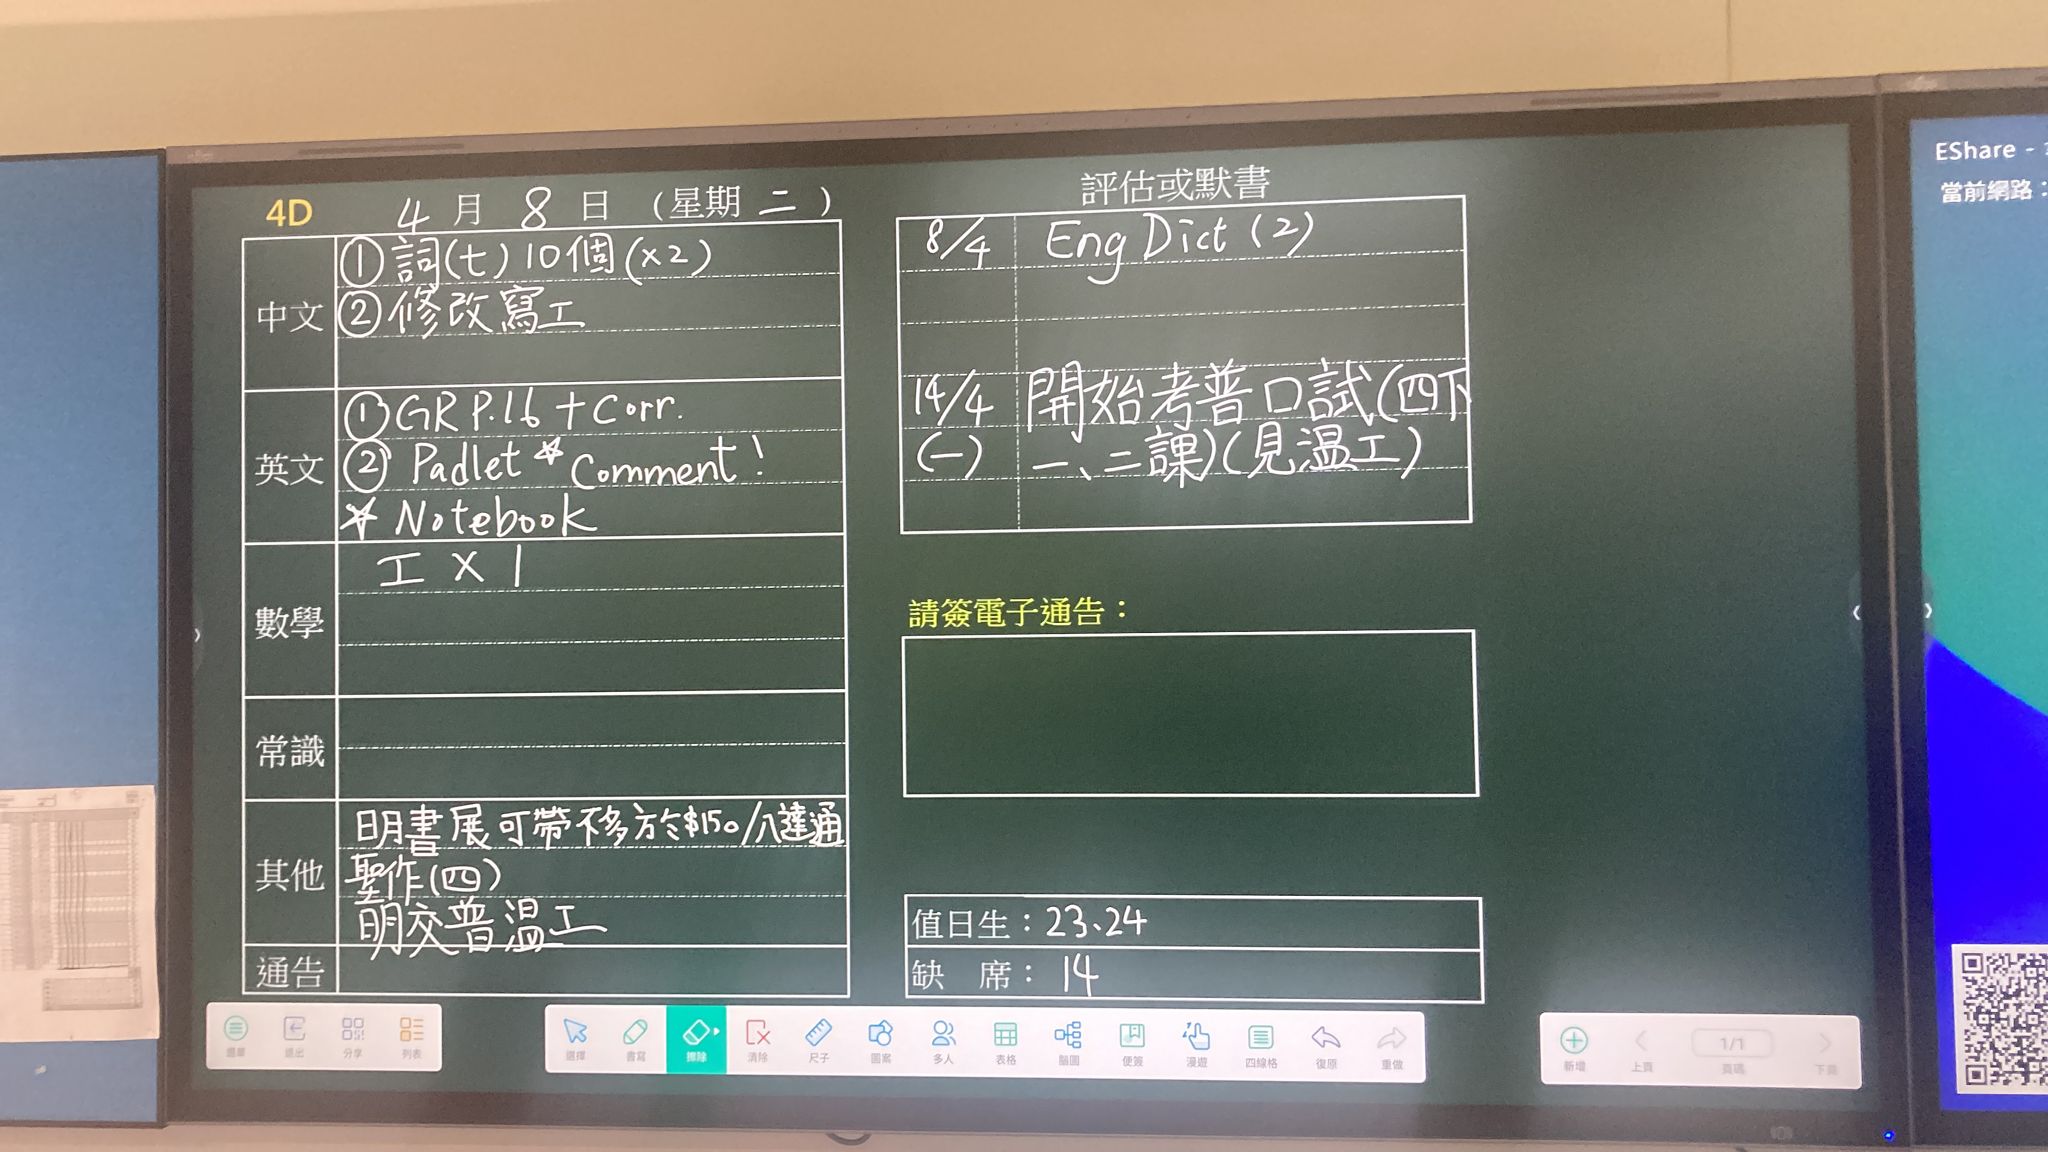 4D 4月8日(星期二)
中文
①詞(七)10個(x2)
②修改寫工
英文
①GR P.16 + Corr.
②Padlet *Comment!
*Notebook
數學
工 X 1
常識
其他
明書展可帶不多於$150/八達通
聖作(四)
明交普溫工
通告
評估或默書
8/4 Eng Dict (2)
14/4 開始考普口試(四下
(一) 一、二課)(見溫工)
請簽電子通告:
值日生:23、24
缺 席:14
選單 退出 分享 列表
選擇 書寫 擦除 清除 尺子 圖案 多人 表格 腦圖 便簽 漫遊 四線格 復原 重做
新增 上頁 1/1 頁碼 下頁
EShare -
當前網路: